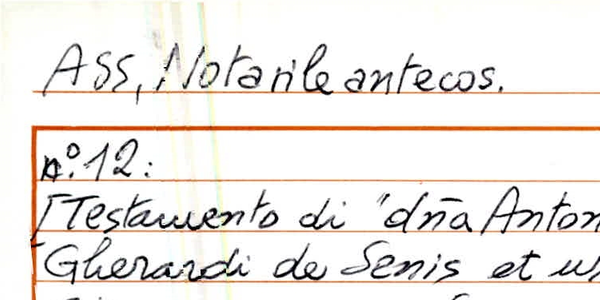 ASS, Notarile antecos.
n.º 12:
[Testamento di "dña Anton
Gherardi de Senis et